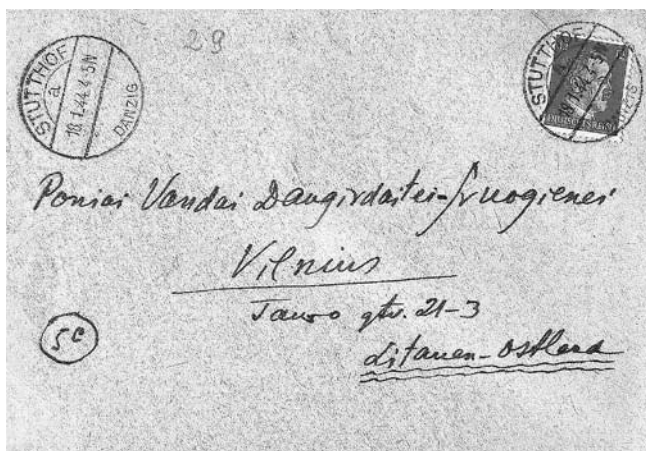 29
STUTTHOF
a
18.1.44.4-5N
DANZIG
STUTTHOF
18.1.44.4-5N
DANZIG
Poniai Vandai Daugirdaitei-Sruogienei
Vilnius
Tauro gtv. 21-3
Litauen-Ostland
5c